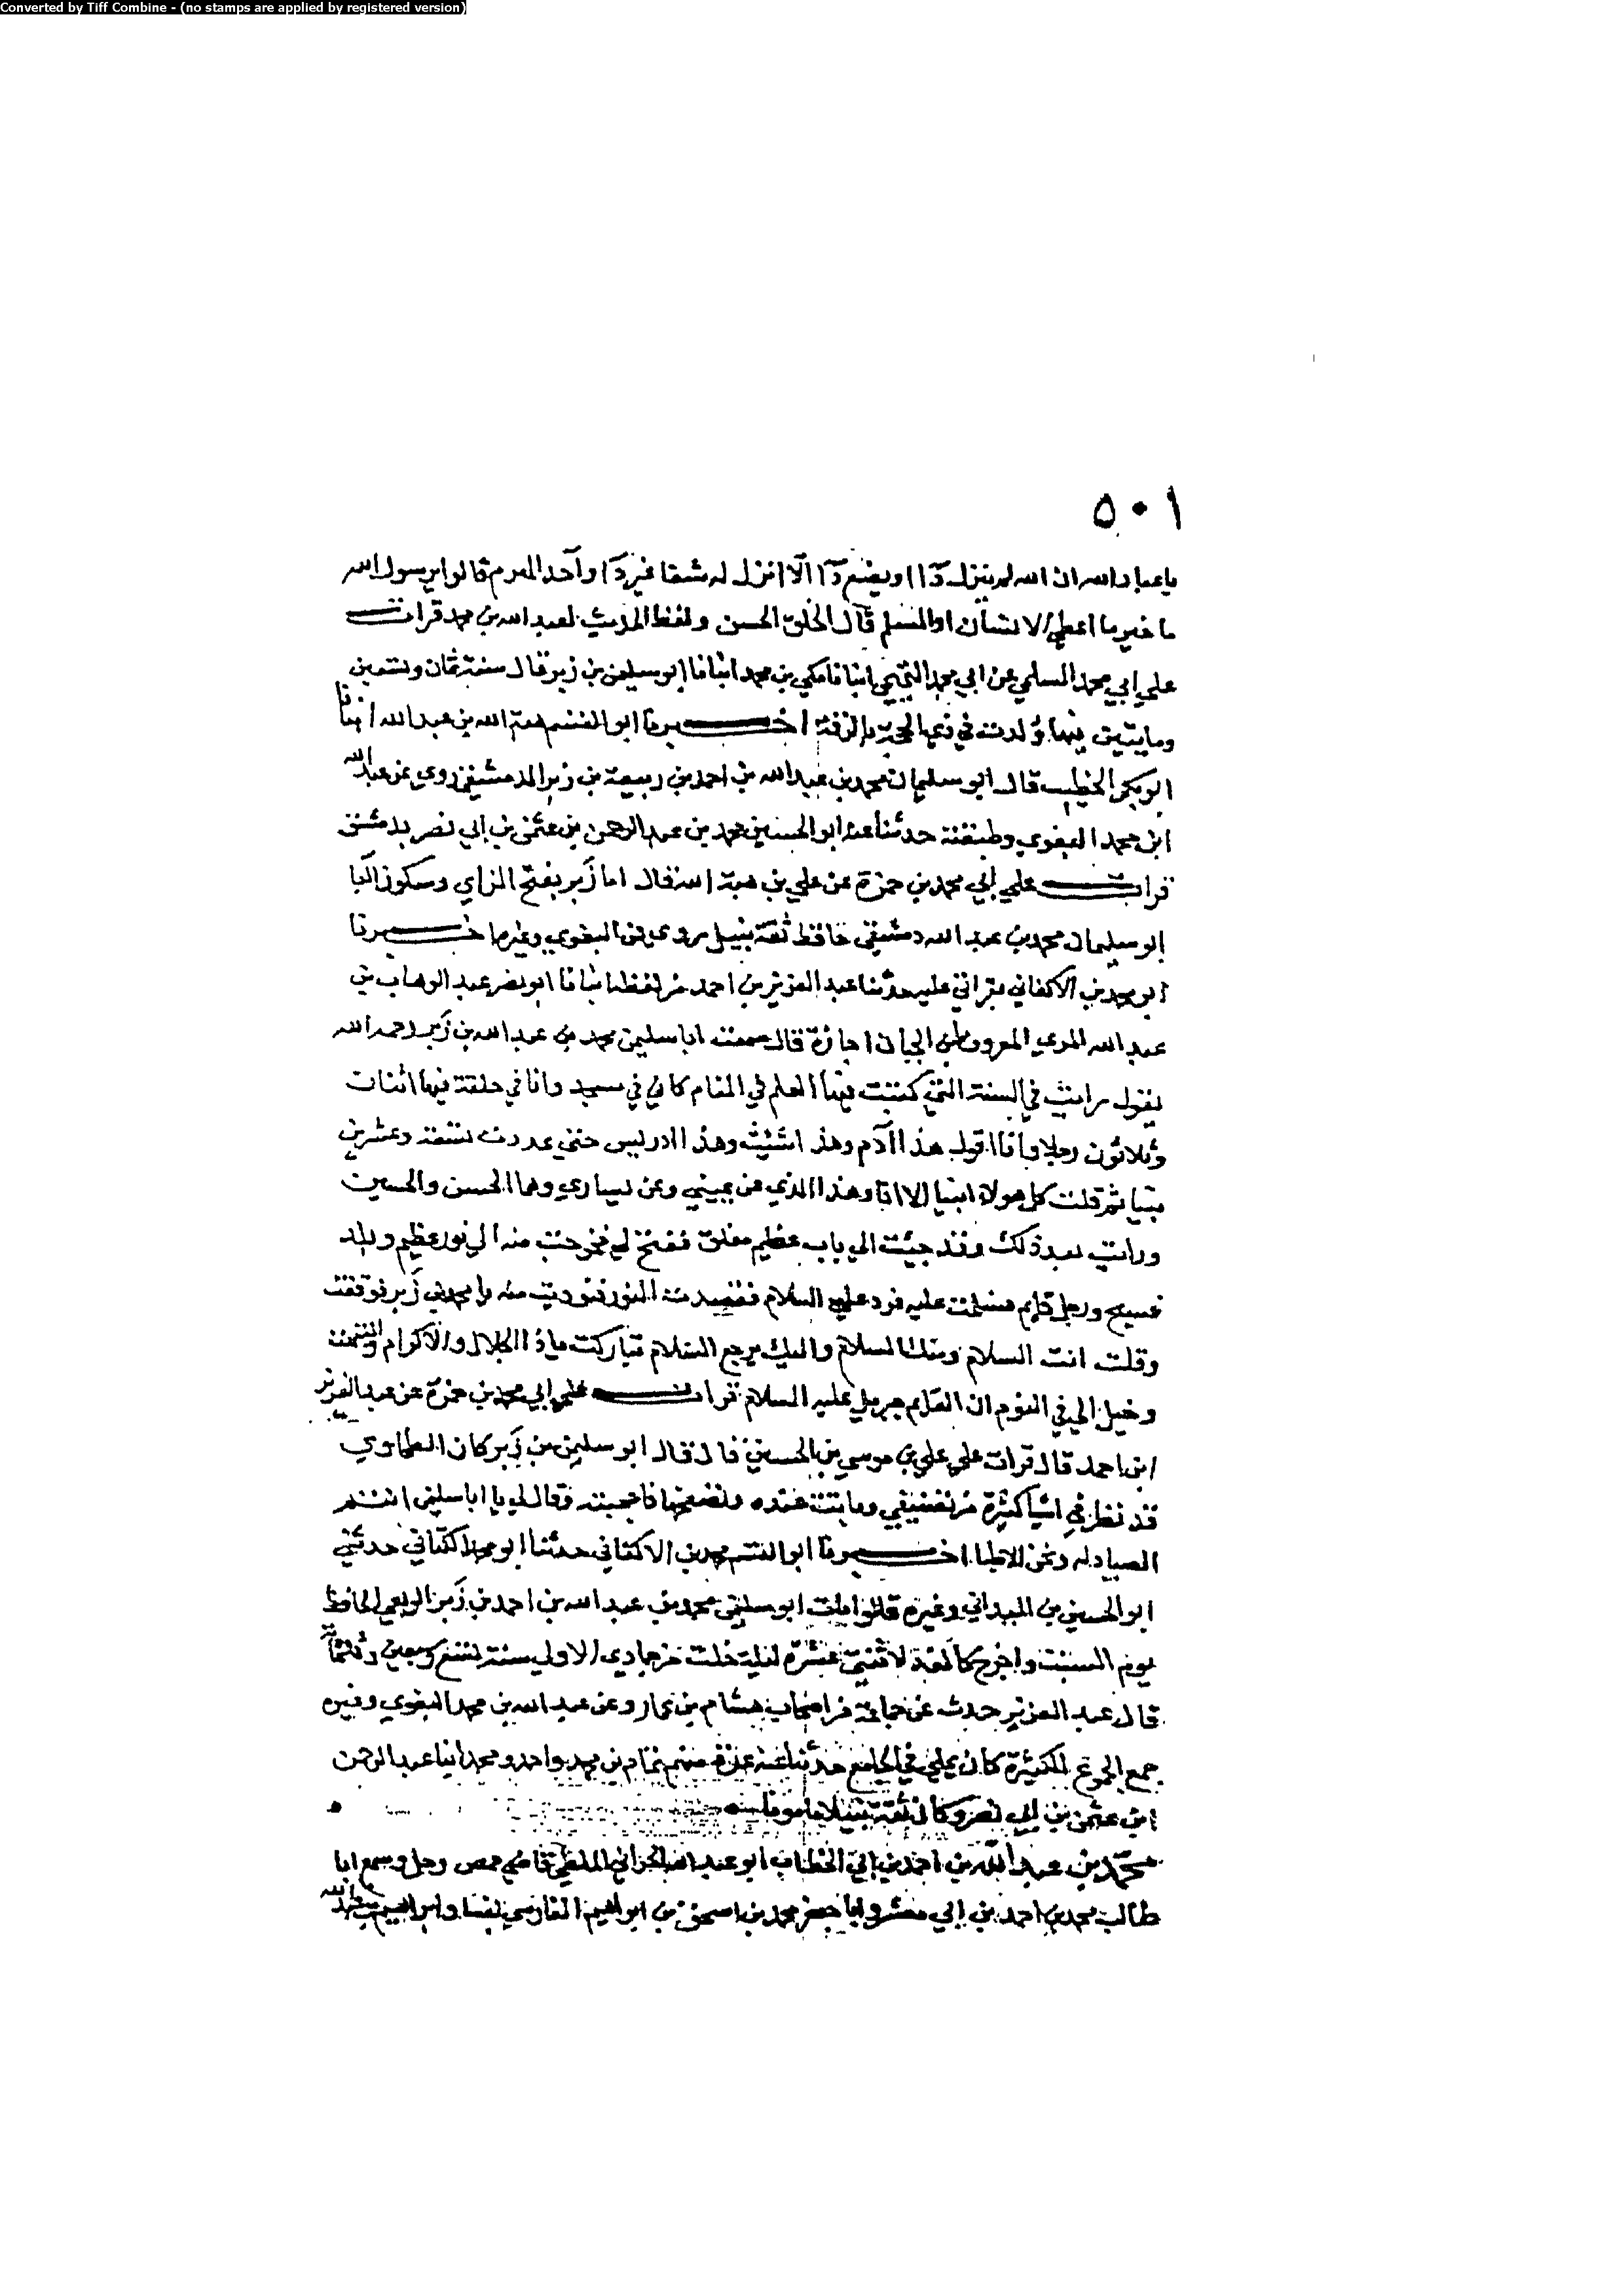 Converted by Tiff Combine - (no stamps are applied by registered version)
٥٠١
يا عباد الله ان الله لم ينزل دآا او يضع دآا الا انزل له شفا غير دآا واحد الهرم قالوا يرسول الله
ما خير ما اعطي الانسان او المسلم قال الخلق الحسن ولفظ الحديث لعبد الله بن محمد قرات
علي ابي محمد السلمي عن ابي محمد التميمي انبانا مكي بن محمد انبانا ابو سليمن بن زبر قال سنة ثمان وتسعين
ومايتين فيها ولدت في ذي الحجة بالرقة اخبرنا ابو القسم هبة الله بن عبد الله انبانا
ابو بكر الخطيب قال ابو سليمان محمد بن عبد الله بن احمد بن ربيعة بن زبر الدمشقي روي عن عبد الله
ابن محمد البغوي وطبقته حدثنا عنه ابو الحسين محمد بن عبد الرحمن بن عثمن بن ابي نصر بدمشق
قرات علي ابي محمد بن حمزة عن علي بن هبة الله قال اما زبر بفتح الزاي وسكون البا
ابو سليمان محمد بن عبد الله دمشقي حافظ ثقة نبيل روي عن البغوي وغيره اخبرنا
ابو محمد بن الاكفاني بقراتي عليه حدثنا عبد العزيز بن احمد من لفظه انبانا ابو نصر عبد الوهاب بن
عبد الله المري المعروف بابن الجبان اجازة قال سمعت ابا سليمن محمد بن عبد الله بن زبر رحمه الله
يقول رايت في السنة التي كتبت فيها العلم في المنام كاني في مسجد وانا في حلقة فيها اثنان
وثلاثون رجلا وانا اقول هذا آدم وهذا شيث وهذا ادريس حتي عددت تسعة وعشرين
نبيا ثم قلت كل هولاء انبيا الا انا وهذا الذي عن يميني وعن يساري وهما الحسن والحسين
ورايت بعد ذلك وقد جيت الي باب عظيم مغلق ففتح لي فخرجت منه الي نور عظيم وبلد
فسيح ورجل قايم فسلمت عليه فرد علي السلام فقصدت النور فنوديت منه يا محمد بن زبر فوقفت
وقلت انت السلام ومنك السلام واليك يرجع السلام تباركت ياذا الجلال والاكرام
وخيل الي في النوم ان القايم جبريل عليه السلام قرات علي ابي محمد بن حمزة عن عبد العزيز
ابن احمد قال قرات علي علي بن موسي بن الحسين قال قال ابو سليمن بن زبر كان الطحاوي
قد نظر في اشيا كثيرة من تصنيفي وباتت عنده وتصفحها فاعجبته وقال لي يا ابا سليمن انتم
الصيادله ونحن الاطبا اخبرنا ابو القسم محمد بن الاكفاني حدثنا ابو محمد الكتاني حدثني
ابو الحسين بن الميداني وغيره قالوا مات ابو سليمن محمد بن عبد الله بن احمد بن زبر الربعي الحافظ
يوم السبت واخرج كالغد لاثنتي عشرة ليلة خلت من جمادي الاولي سنة تسع وسبعين وثلثماية
قال عبد العزيز حدث عن جماعة من اصحاب هشام بن عمار وعن عبد الله بن محمد البغوي وغيره
جمع الجموع الكثيرة كان يملي في الجامع حدثنا عنه عدة منهم تمام بن محمد واحد ومحمد ابنا عبد الرحمن
ابن عثمن بن ابي نصر وكان ثقة نبيلا مامونا
محمد بن عبد الله بن احمد بن ابي الخطاب ابو عبد الله الحراني قاضي حمص رحل وسمع ابا
طالب محمد بن احمد بن ابي معشر وابا جعفر محمد بن اسحق بن ابراهيم الفارسي بفسا وابراهيم بن عبد الله